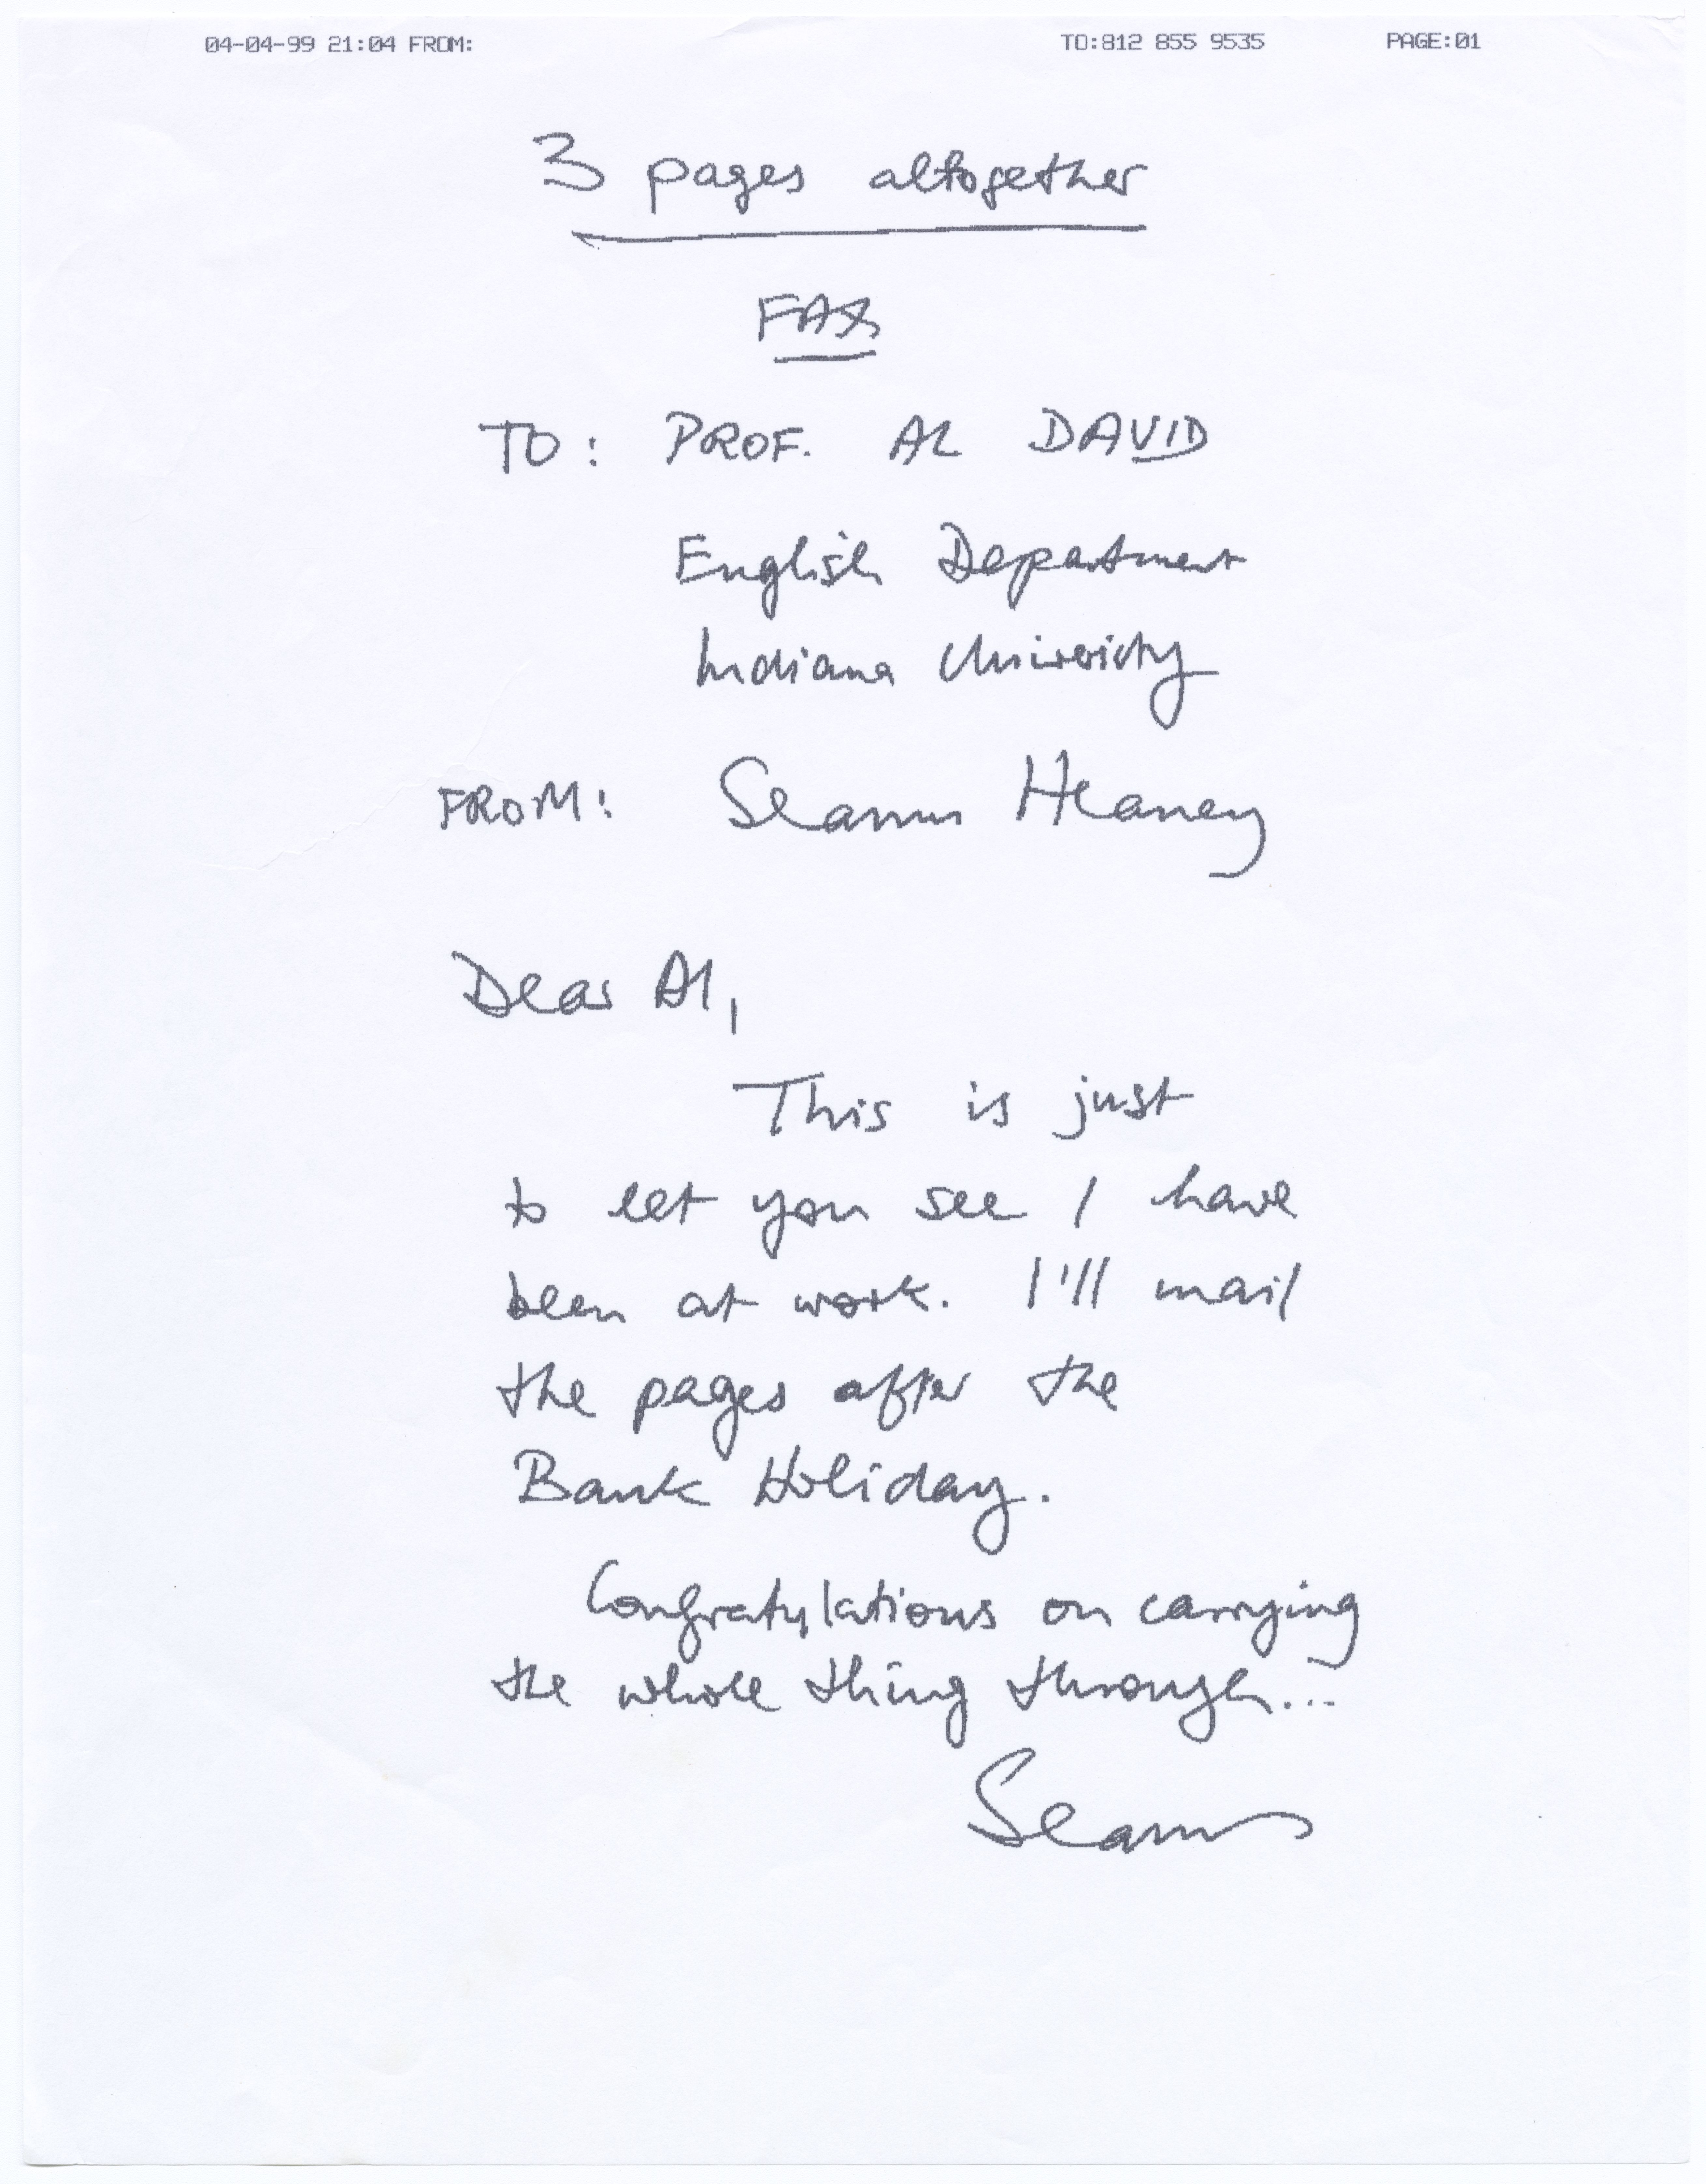 04-04-99 21:04 FROM: TO:812 855 9535 PAGE:01
3 pages altogether
FAX
TO: PROF. AL DAVID
English Department
Indiana University
FROM: Seamus Heaney
Dear Al,
This is just
to let you see I have
been at work. I'll mail
the pages after the
Bank Holiday.
Congratulations on carrying
the whole thing through...
Seamus